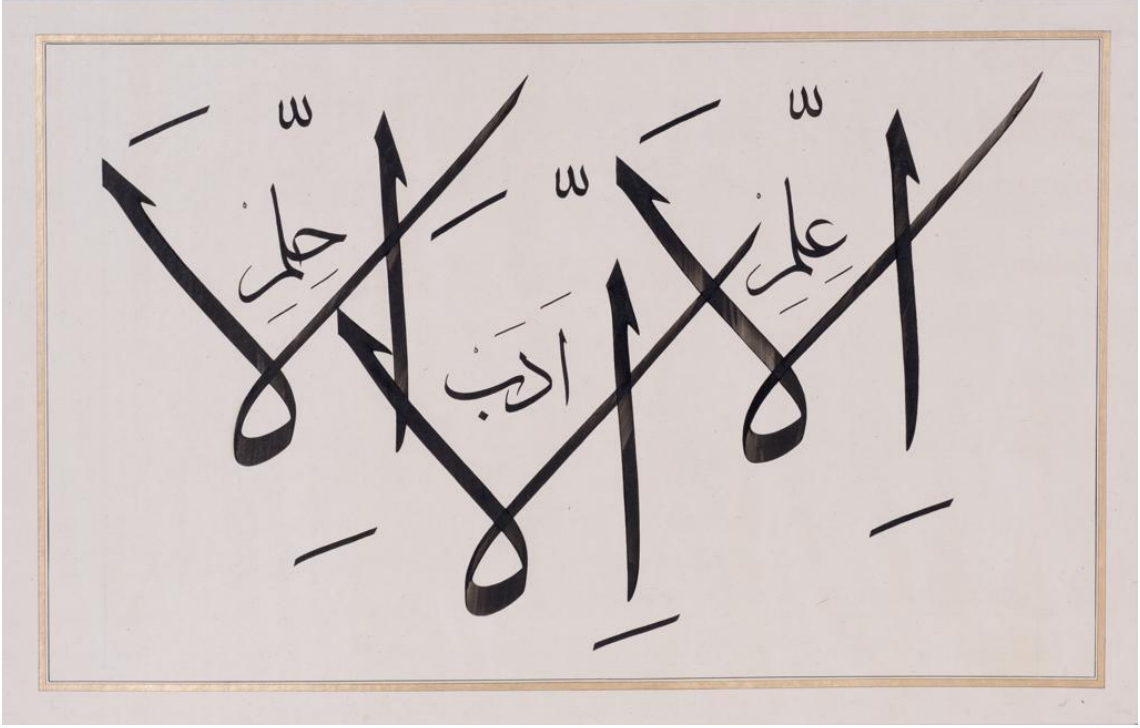 اِلَّا عِلِمْ
اِلَّا اَدَبْ
اِلَّا حِلِمْ